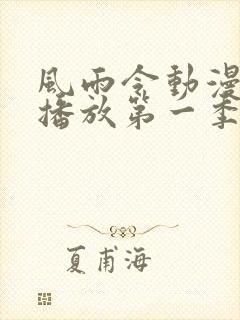 風雨令動漫
播放第一季
夏甫海